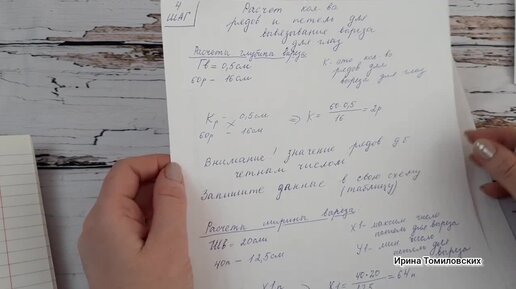 4
ШАГ
Расчет кол-во
рядов и петель для
вывязывание выреза
для глаз
Расчеты глубина выреза
Гв = 0,5см
60р - 16см
К - это кол-во
рядов для
выреза для глаз
Кр - 0,5см
60р - 16см
=> К = 60·0,5 / 16 = 2р
Внимание! значение рядов д.б
четным числом
Запишите данные в свою схему
(таблицу)
Расчеты ширины выреза
Шв = 20см
40п - 12,5см
X1 - максим число
петель для выреза
У1 - мин число
петель для
выреза
=> X1 = 40·20 = 64п
Ирина Томиловских